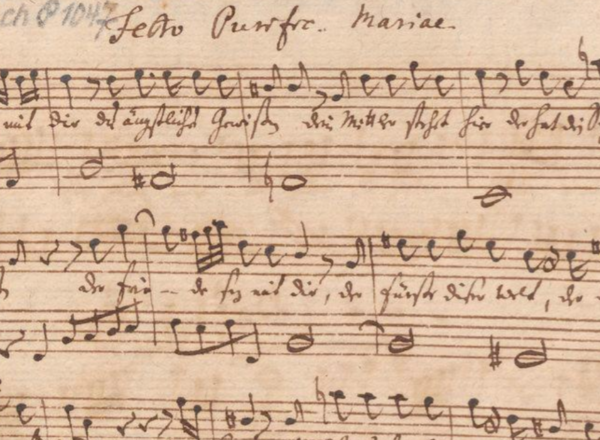 ch P 1047
Festo Purific. Mariae.
mit dir du ängstlichs Gewißen dein Mittler steht hier der hat dei
der frie - de sey mit dir, der fürst dieser welt, der